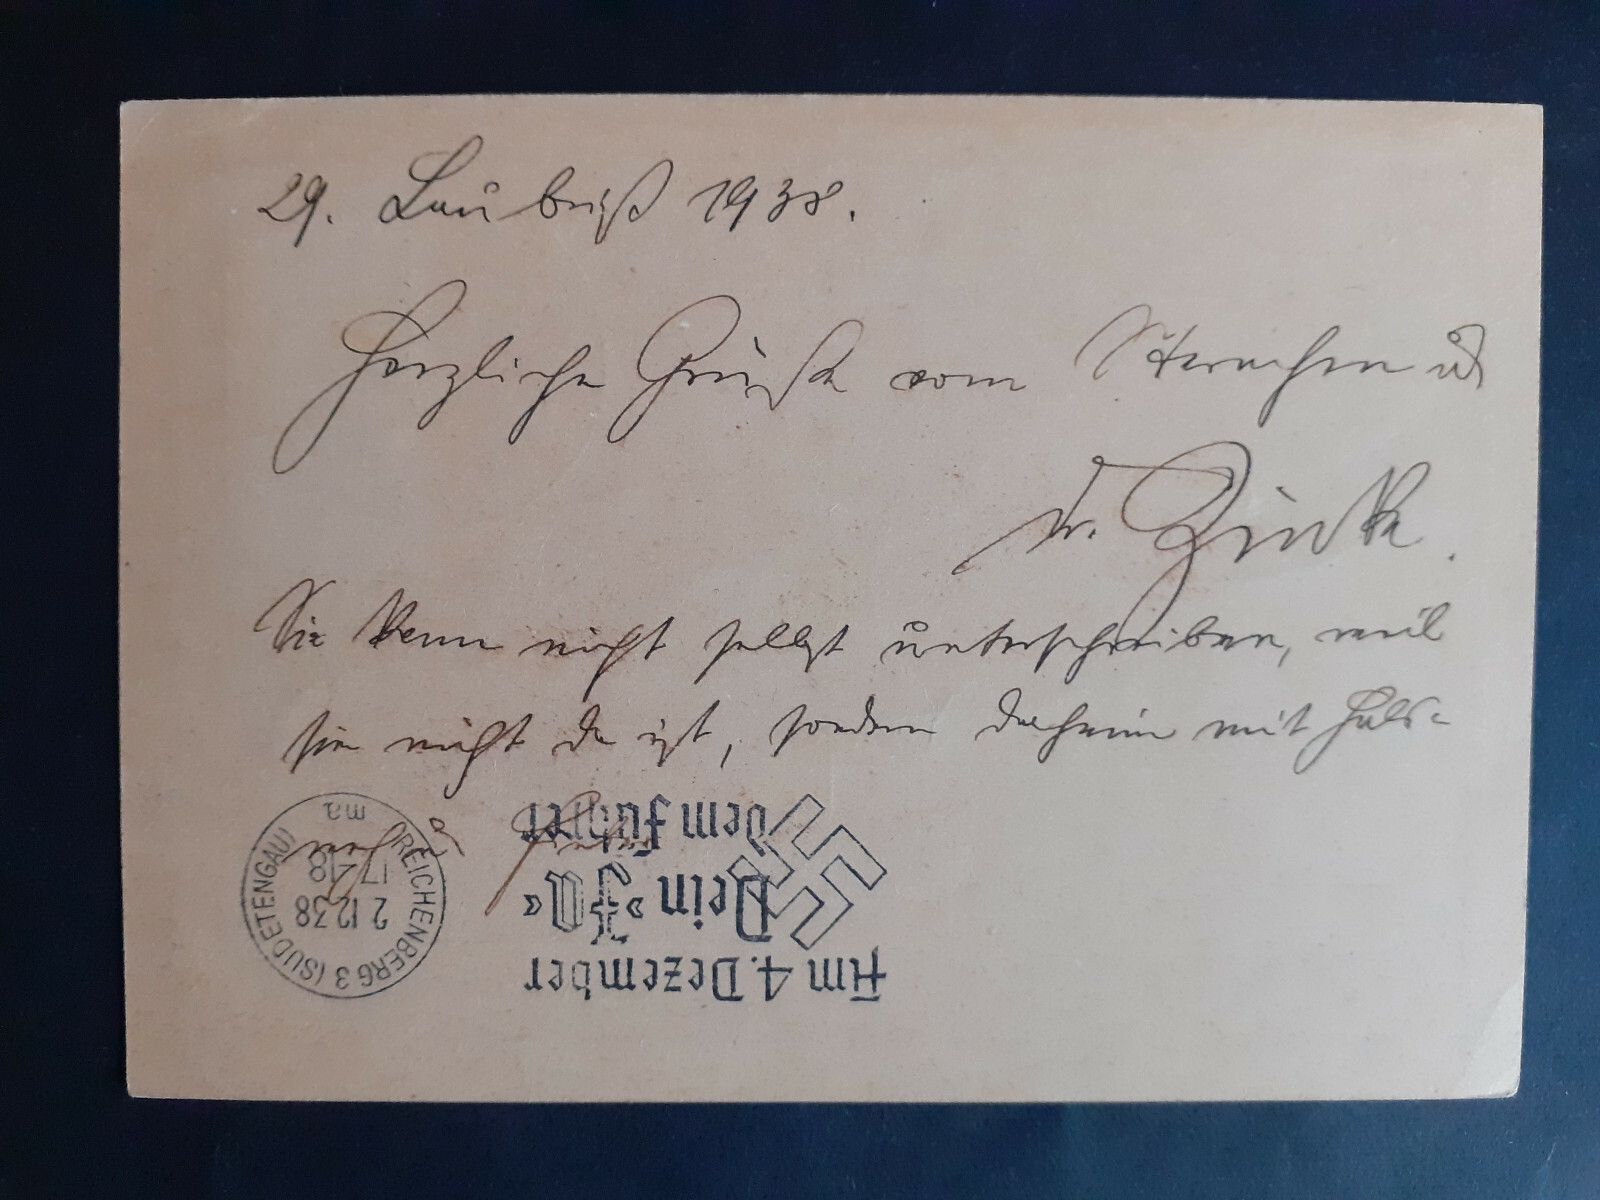 29. Laubriß 1938.
Herzliche Grüße vom
Dr. Zinke.
Sie kann nicht selbst unterschreiben, weil
sie nicht da ist, sondern daheim mit Hals-
Am 4. Dezember
Dein »Ja«
dem Führer
REICHENBERG 3 (SUDETENGAU)
2.12.38
17-18
ma